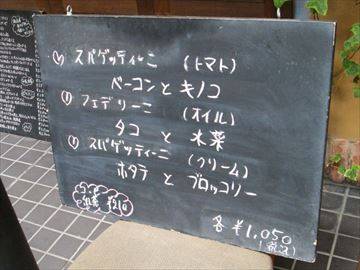 スパゲッティーニ (トマト)
ベーコンと キノコ
フェデリーニ (オイル)
タコ と 水菜
スパゲッティーニ (クリーム)
ホタテ と ブロッコリー
各 ¥1,050
(税込)